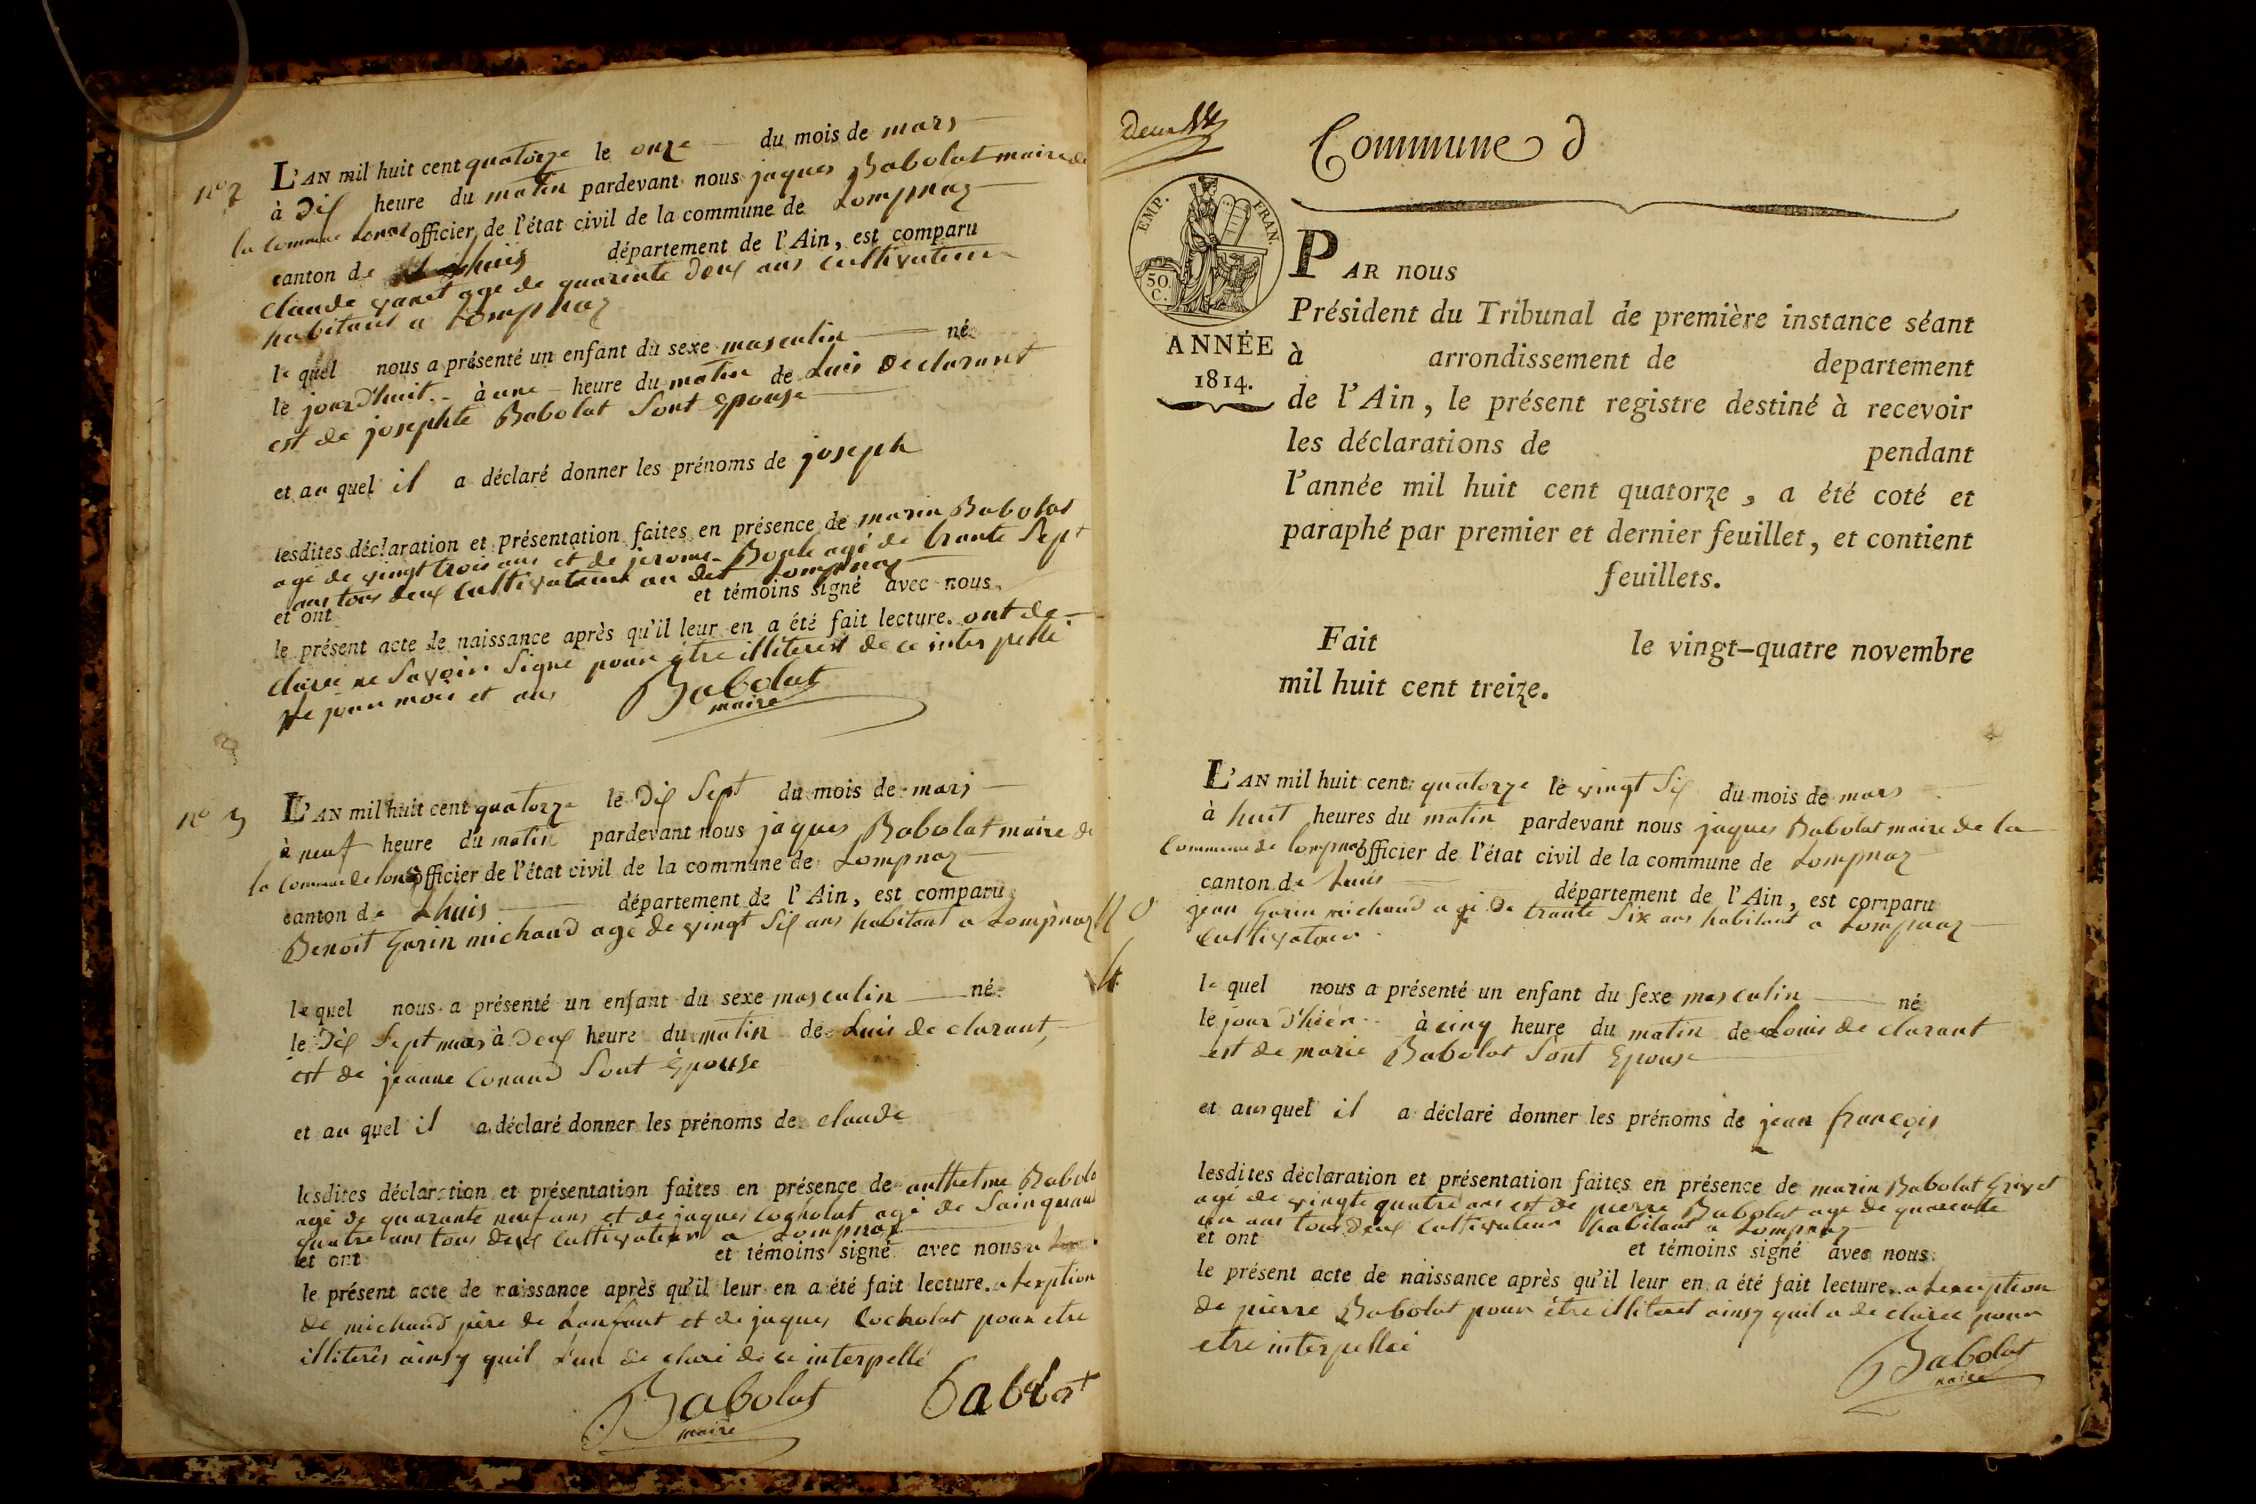 nº 2
L'AN mil huit cent quatorze le onze du mois de mars
à dix heure du matin pardevant nous jaques Babolat maire de
la commune officier de l'état civil de la commune de Lompnaz
canton de Lhuis département de l'Ain, est comparu
claude agé de quarente deux ans cultivateur
habitant a Lompnaz
le quel nous a présenté un enfant du sexe masculin né
le jourd'huit à une heure du matin de Luis declarant
est de josephte Babolat Sont Epouse
et au quel il a déclaré donner les prénoms de joseph
lesdites déclaration et présentation faites en présence de marin Babolat
agé de vingt trois ans et de jerome agé de trante Sept
ans tous deux cultivateur au dit Lompnaz
et ont et témoins signé avec nous
le présent acte de naissance après qu'il leur en a été fait lecture. ont de
claré ne Savoir Signé pour être illiteres de ce interpellé
le jour mois et ans
Babolat
maire
nº 3
L'AN mil huit cent quatorze le dix Sept du mois de mars
à neuf heure du matin pardevant nous jaques Babolat maire de
la commune de officier de l'état civil de la commune de Lompnaz
canton de Lhuis département de l'Ain, est comparu
Benoit Garin michaud agé de vingt Six ans habitant a Lompnaz
le quel nous a présenté un enfant du sexe masculin né
le dix Sept mars à deux heure du matin de Luis de clarant,
est de jeanne Conand Sont Epouse
et au quel il a déclaré donner les prénoms de claude
lesdites déclaration et présentation faites en présence de anthelme Babola
agé de quarante neuf ans et de jaques Cocholat agé de Sainquant
quatre ans tous deux cultivateur a Lompnaz
et ont et témoins signé avec nous
le présent acte de naissance après qu'il leur en a été fait lecture. a Lexption
de michaud père de Lanfant et de jaques Cocholat pour etre
illiterês ainsy quil Lon de claré de ce interpellé
Babolat
maire
babolat
Deux
Commune d
EMP. FRAN.
50 C.
ANNÉE
1814.
PAR nous
Président du Tribunal de première instance séant
à arrondissement de departement
de l'Ain, le présent registre destiné à recevoir
les déclarations de pendant
l'année mil huit cent quatorze, a été coté et
paraphé par premier et dernier feuillet, et contient
feuillets.
Fait le vingt-quatre novembre
mil huit cent treize.
nº
4
L'AN mil huit cent quatorze le vingt Six du mois de mars
à huit heures du matin pardevant nous jaques Babolat maire de la
Commune de Lompnaz officier de l'état civil de la commune de Lompnaz
canton de Luis département de l'Ain, est comparu
jean Garin michaud agé de trante Six ans habitant a Lompnaz
Cultivateur
le quel nous a présenté un enfant du sexe masculin né
le jour d'hier à cinq heure du matin de Louis de clarant
est de marie Babolat Sont Epouse
et au quel il a déclaré donner les prénoms de jean françois
lesdites déclaration et présentation faites en présence de marin Babolat Grivet
agé de vingte quatre ans est de pierre Babolat agé de quarente
un ans tous deux cultivateur habitant a Lompnaz
et ont et témoins signé avec nous
le présent acte de naissance après qu'il leur en a été fait lecture. a Lexception
de pierre Babolat pour être illiteret ainsy quil a de claréé pour
etre interpelléé
Babolat
maire